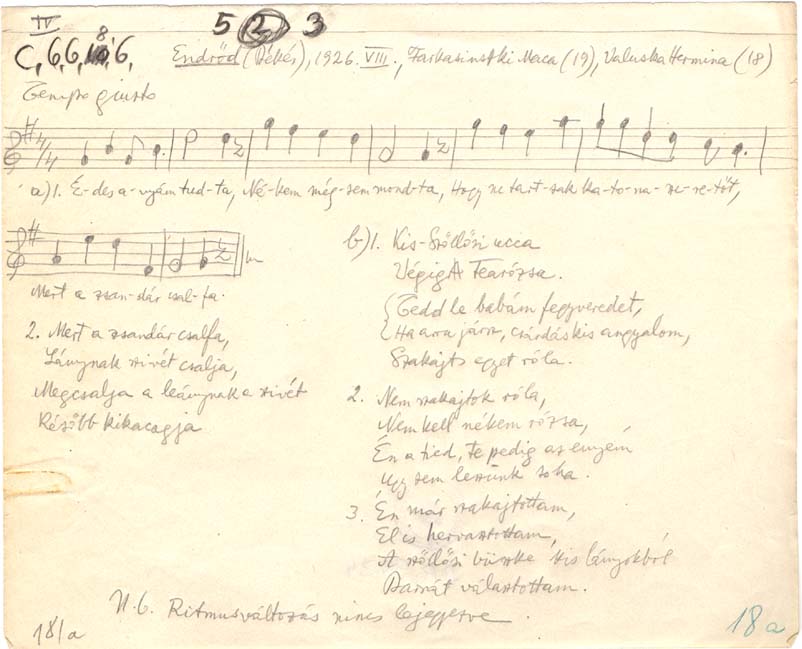 IV 5 2 3
C, 6, 6, 8 10, 6,
Endrőd (Békés), 1926. VIII., Farkasinszki Maca (19), Valuska Hermina (18)
Tempo giusto
4/4
a) 1. É-des a-nyám tud-ta, Né-kem még-sem mond-ta, Hogy ne tart-sak ka-to-na-sze-re-tőt,
Mert a zsan-dár csal-fa.
2. Mert a zsandár csalfa,
Lánynak szivét csalja,
Megcsalja a leánynak a szivét
Később kikacagja
b) 1. Kis-Szőllősi ucca
Végig Tearózsa.
Tedd le babám fegyveredet,
Ha arra jársz, csárdás kis angyalom,
Szakajts egyet róla.
2. Nem szakajtok róla,
Nem kell nékem rózsa,
Én a tied, te pedig az enyém
Ugy sem leszünk soha.
3. Én már szakajtottam,
El is hervasztottam,
A szőllősi büszke kis lányokból
Barnát választottam.
N.b. Ritmusváltozás nincs lejegyezve.
18/a
18a